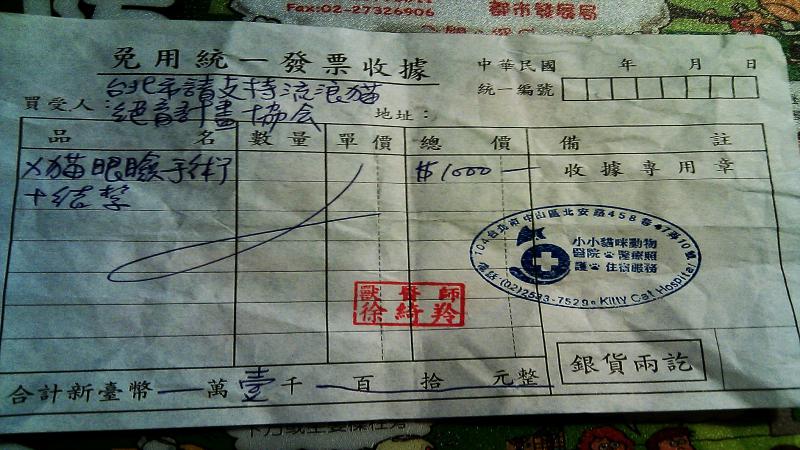 Fax:02-27326906
都市發展局
免用統一發票收據
中華民國 年 月 日
統一編號
台北市請支持流浪貓
買受人：絕育計畫協会
地址：
品名 數量 單價 總價 備註
X貓眼瞼手術 $1000 收據專用章
+結紮
104台北市中山區北安路458巷47弄10號
小小貓咪動物
醫院 醫療照
護 住宿服務
電話：(02)2533-7529 Kitty Cat Hospital
獸醫師
徐綺羚
銀貨兩訖
合計新臺幣 萬 壹 千 百 拾 元整